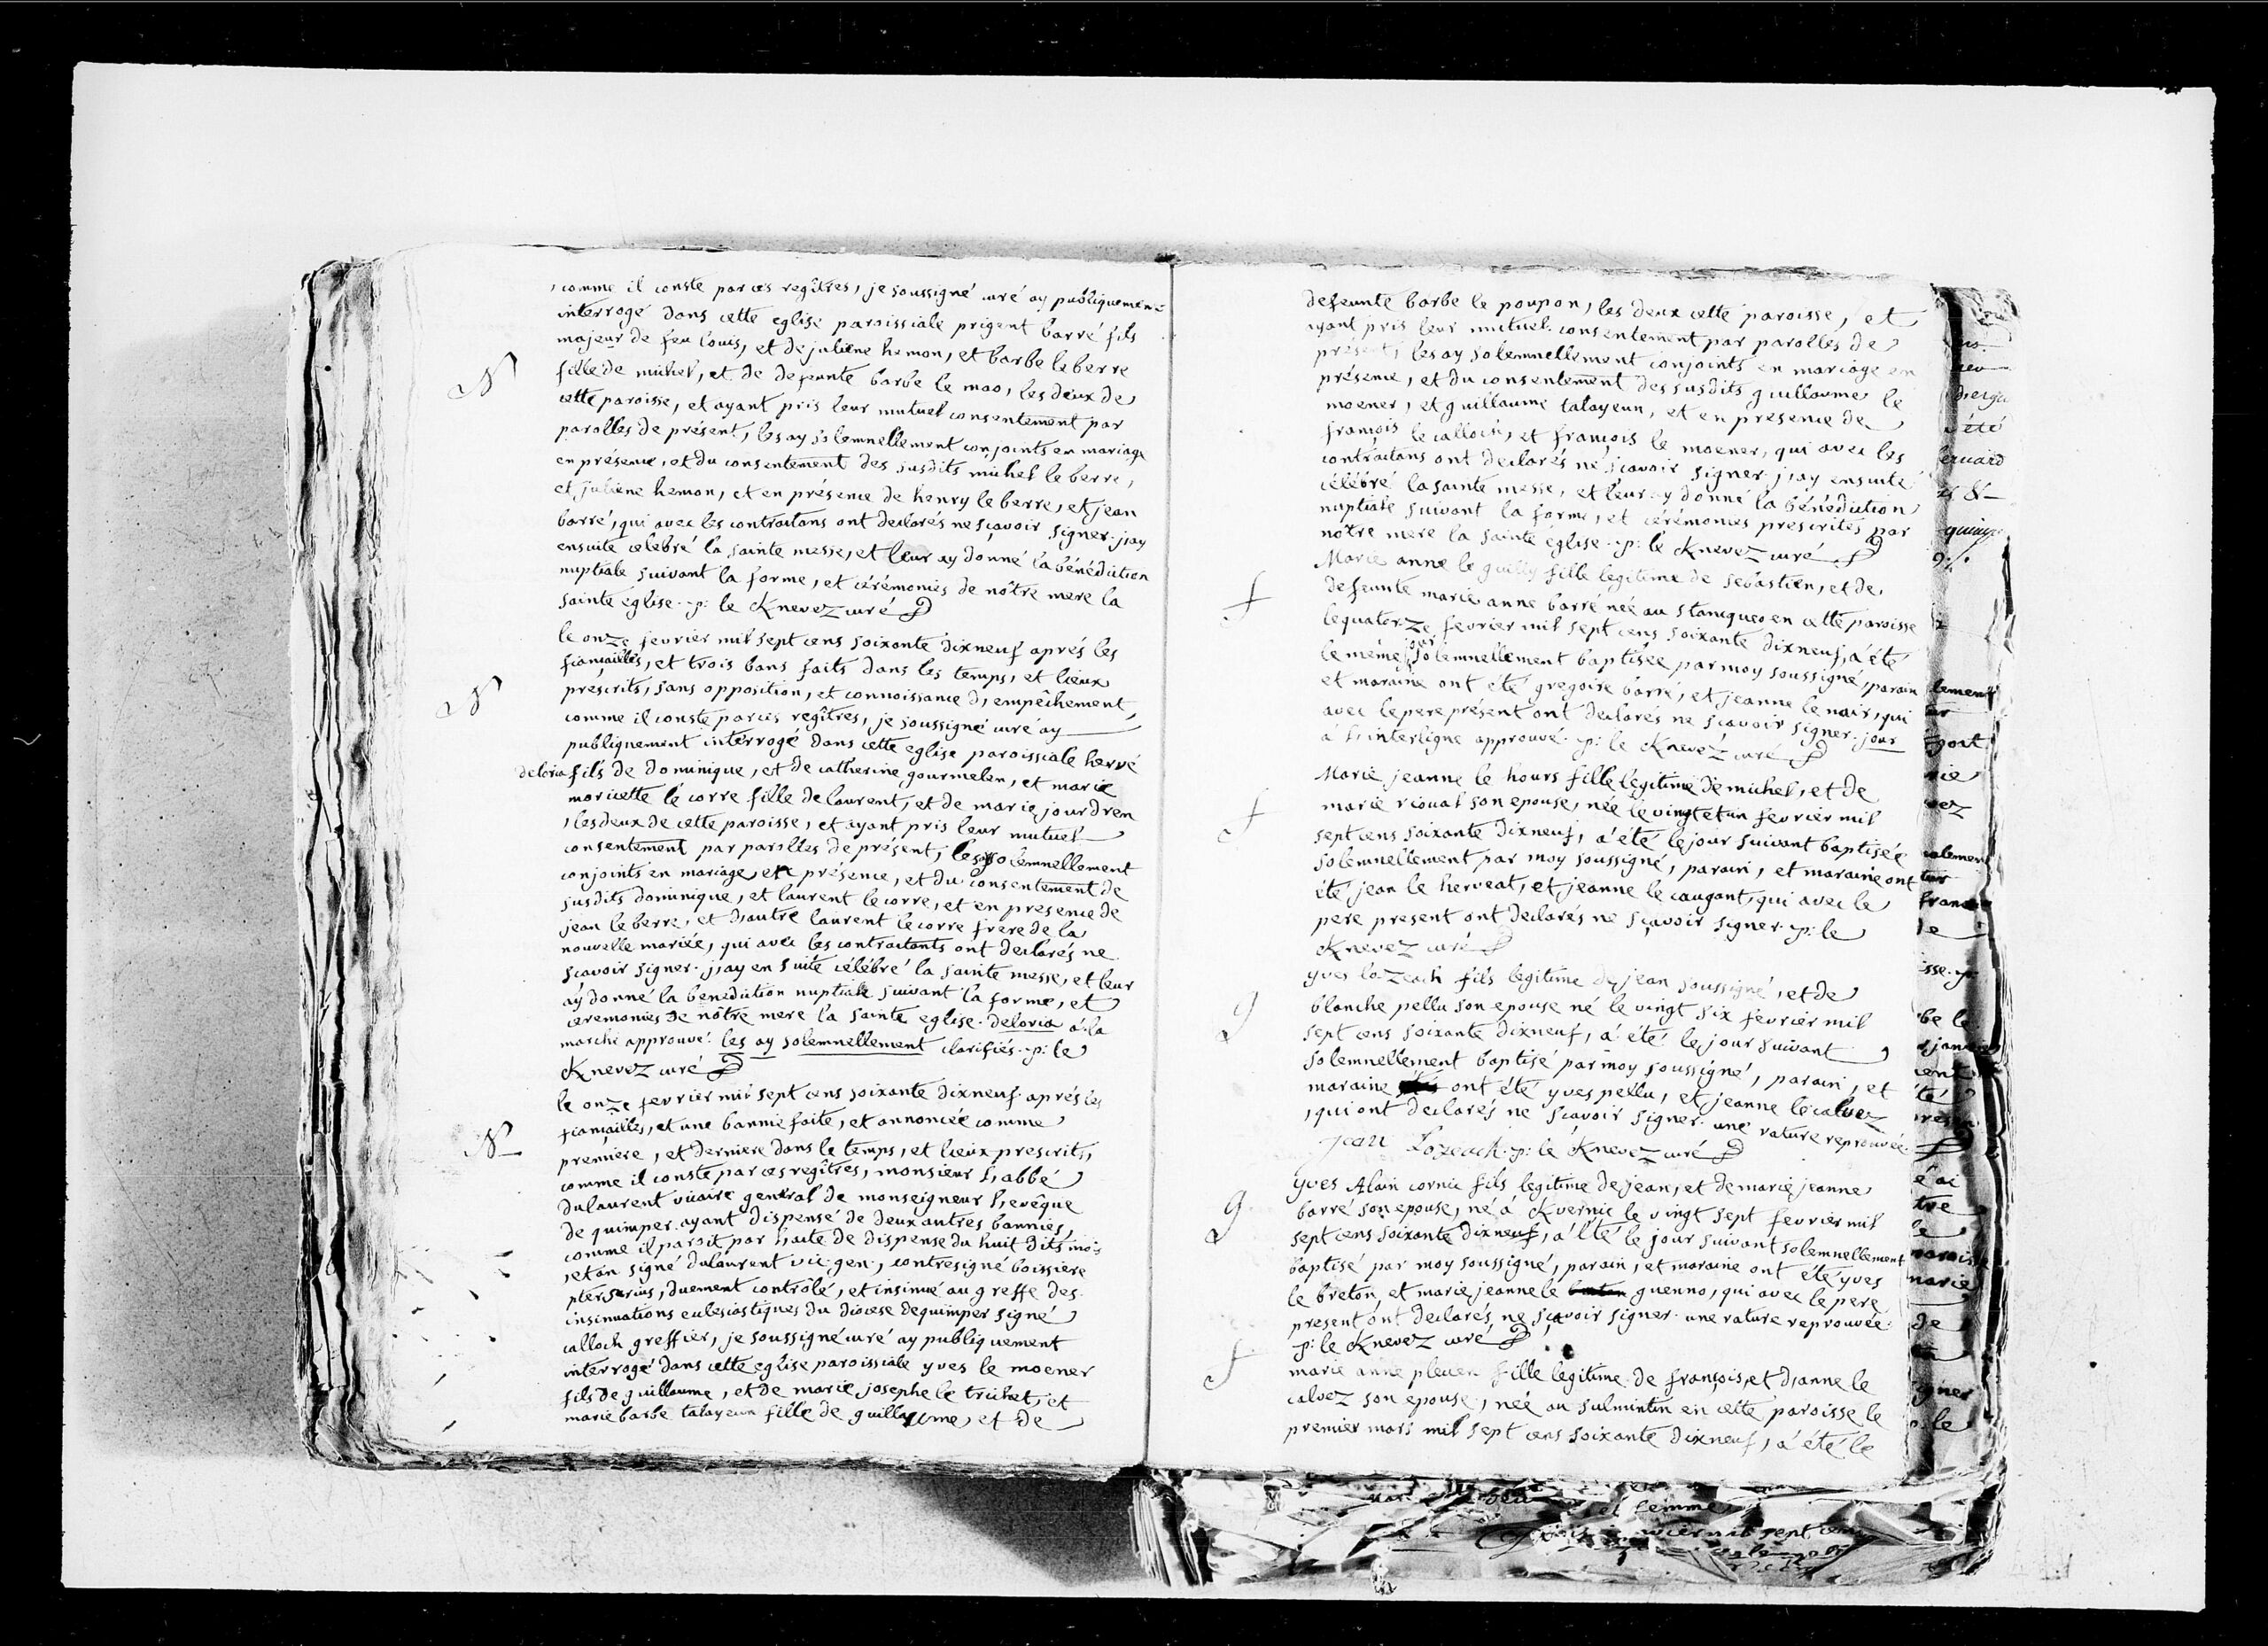 , comme il conste par ces regîtres, je soussigné curé ay publiquement
interrogé dans cette eglise paroissiale prigent barré fils
majeur de feu louis, et de juliene hemon, et barbe le berre
N
fille de michel, et de defunte barbe le mao, les deux de
cette paroisse, et ayant pris leur mutuel consentement par
parolles de présent, les ay solemnellement conjoints en mariage
en présence, et du consentement des susdits michel le berre,
et juliene hemon, et en présence de henry le berre, et jean
barré, qui avec les contractans ont declarés ne sçavoir signer. j,ay
ensuite celebré la sainte messe, et leur ay donné la bénédiction
nuptiale suivant la forme, et cérémonies de nôtre mere la
sainte eglise. p: le Knevez curé
le onze fevrier mil sept cens soixante dixneuf aprés les
fiançailles, et trois bans faits dans les temps, et lieux
N
prescrits, sans opposition, et connoissance d,empêchement,
comme il conste par ces regîtres, je soussigné curé ay
publiquement interrogé dans cette eglise paroissiale hervé
deloria fils de dominique, et de catherine gourmelen, et marie
moricette le corre fille de laurent, et de marie jourdren
, les deux de cette paroisse, et ayant pris leur mutuel
consentement par parolles de présent, les ay solemnellement
conjoints en mariage, en présence, et du consentement de
susdits dominique, et laurent le corre, et en presence de
jean le berre, et d,autre laurent le corre frere de la
nouvelle mariée, qui avec les contractants ont declarés ne
scavoir signer. j,ay en suite célébré la sainte messe, et leur
aÿ donné la benediction nuptiale suivant la forme, et
ceremonies de nôtre mere la sainte eglise. deloria á la
marche approuvé. les ay solemnellement clarifiés. p: le
Knevez curé
le onze fevrier mil sept cens soixante dixneuf aprés les
fiançailles, et une bannie faite, et annoncée comme
N
premiere, et derniere dans le temps, et lieux prescrits,
comme il conste par ces regîtres, monsieur l,abbé
dulaurent vicaire general de monseigneur l,evêque
de quimper ayant dispensé de deux autres bannies,
comme il paroit par l,acte de dispense du huit dits mois
, et an signé dulaurent vic: gen:, contresigné boissiere
, duement contrôlé, et insinué au greffe des
insinuations eclesiastiques du diocese dequimper signé
calloch greffier, je soussigné curé ay publiquement
interrogé dans cette eglise paroissiale yves le moener
fils de guillaume, et de marie josephe le trichet, et
marie barbe talayeun fille de guillaume, et de
defeunte barbe le poupon, les deux cette paroisse, et
ayant pris leur mutuel consentement par parolles de
présent, les ay solemnellement conjoints en mariage en
présence, et du consentement des susdits guillaume le
moener, et guillaume talayeun, et en presence de
françois le calloch, et françois le moener, qui avec les
contractans ont declarés ne sçavoir signer. j,ay ensuite
célébré la sainte messe, et leur ay donné la bénédiction
nuptiale suivant la forme, et cérémonies prescrites par
nôtre mere la sainte église. p: le Knevez curé
Marie anne le guilly fille legitime de sebastien, et de
f
defeunte marie anne barré née au stanqueo en cette paroisse
le quatorze fevrier mil sept cens soixante dixneuf, a été
le même jour solemnellement baptisée par moy soussigné, parain
et maraine ont été gregoire barré, et jeanne le nair, qui
avec le pere présent ont declarés ne scavoir signer. jour
á l,interligne approuvé. p: le Knevez curé
Marie jeanne le hours fille légitime de michel, et de
f
marie rioual son epouse, née le vingt et un fevrier mil
sept cens soixante dixneuf, a été le jour suivant baptisée
solemnellement par moy soussigné, parain, et maraine ont
été jean le herveat, et jeanne le caugant, qui avec le
pere present ont declarés ne sçavoir signer. p: le
Knevez curé
yves lozeach fils legitime de jean soussigné, et de
g
blanche pellu son epouse né le vingt six fevrier mil
sept cens soixante dixneuf, a été le jour suivant
solemnellement baptisé par moy soussigné, parain, et
maraine ont été yves pellu, et jeanne le calvez
, qui ont declarés ne scavoir signer. une rature reprouvée.
jean Lozeach. p: le Knevez curé
yves Alain cornic fils legitime de jean, et de marie jeanne
g
barré son epouse, né á Kvernic le vingt sept fevrier mil
sept cens soixante dixneuf, a été le jour suivant solemnellement
baptisé par moy soussigné, parain, et maraine ont été yves
le breton, et marie jeanne le guenno, qui avec le pere
present ont declarés ne scavoir signer. une rature reprouvée.
p: le Knevez curé
f
marie anne pleuen fille legitime de françois, et d,anne le
calvez son epouse, née au sulmintin en cette paroisse le
premier mars mil sept cens soixante dixneuf, a été le